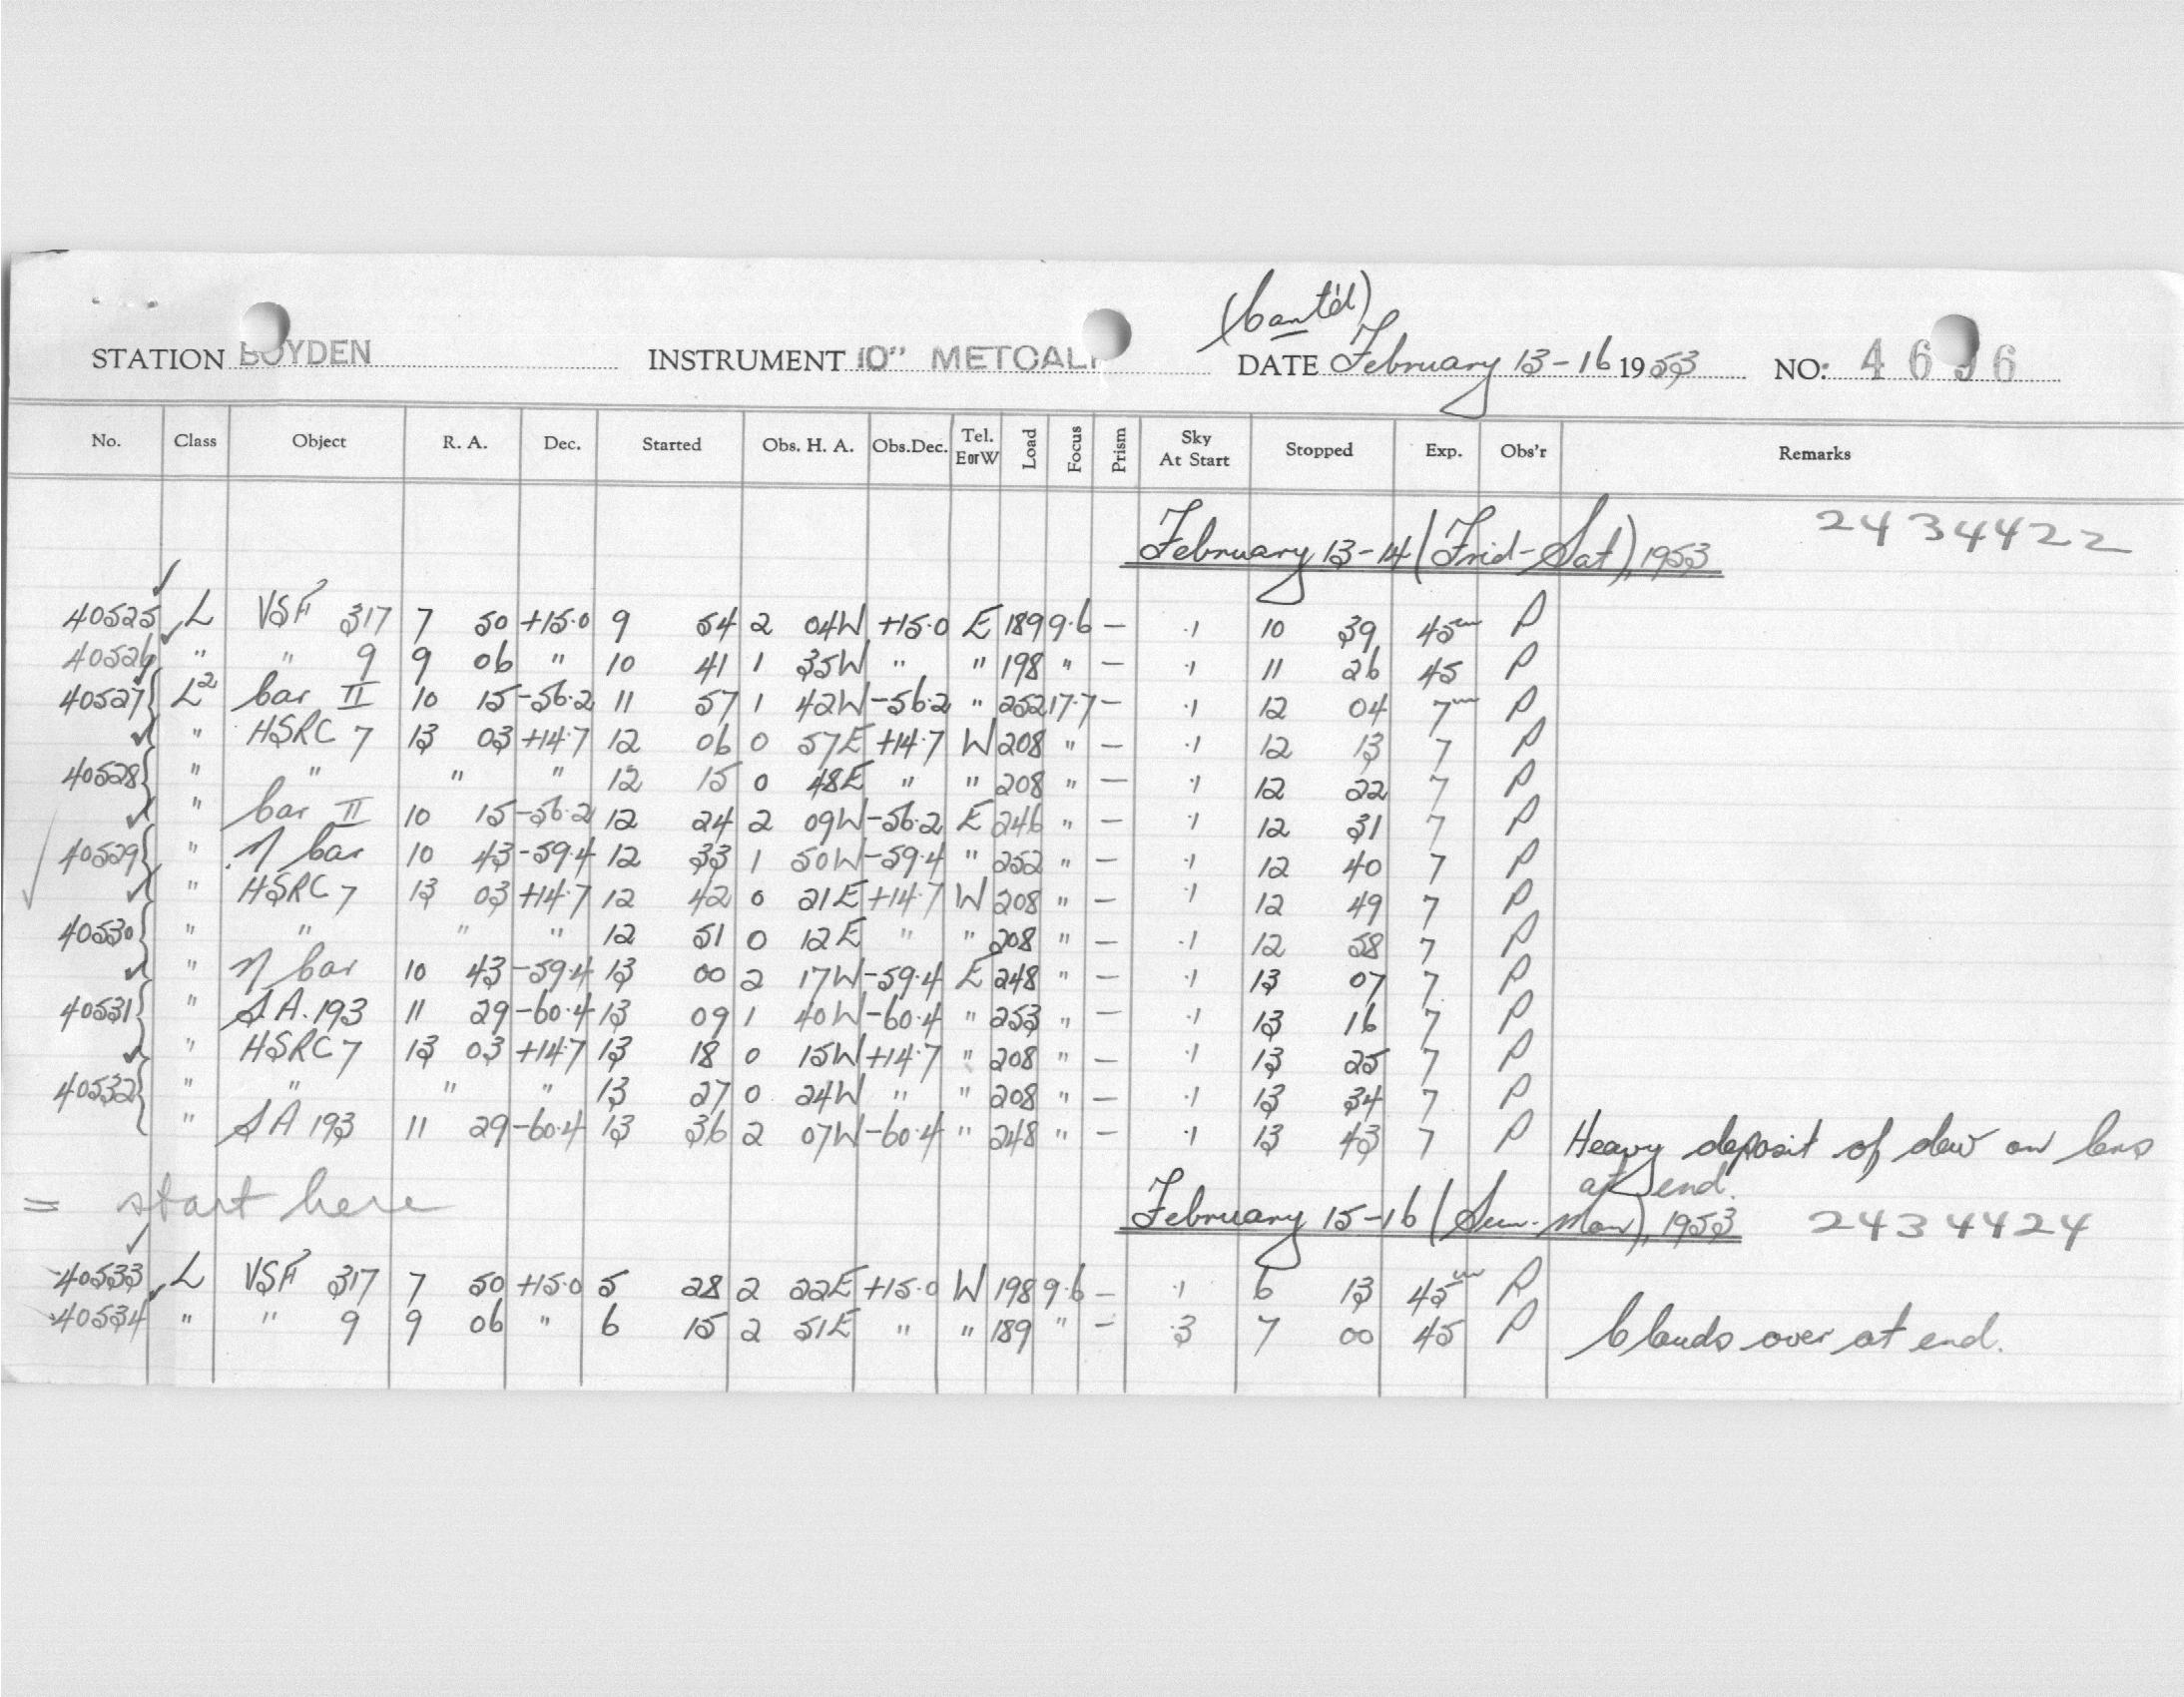 (Cont'd)
STATION BOYDEN INSTRUMENT 10" METCALF DATE February 13-16 1953 NO: 4696
No. Class Object R. A. Dec. Started Obs. H. A. Obs.Dec. Tel. EorW Load Focus Prism Sky At Start Stopped Exp. Obs'r Remarks
February 13-14 (Frid-Sat), 1953 2434422
40525 L VSF 317 7 50 +15.0 9 54 2 04W +15.0 E 189 9.6 — .1 10 39 45m P
40526 " " 9 9 06 " 10 41 1 35W " " 198 " — .1 11 26 45 P
40527 { L2 Car II 10 15 -56.2 11 57 1 42W -56.2 " 252 17.7 — .1 12 04 7m P
" HSRC 7 13 03 +14.7 12 06 0 57E +14.7 W 208 " — .1 12 13 7 P
40528 { " " " " 12 15 0 48E " " 208 " — .1 12 22 7 P
" Car II 10 15 -56.2 12 24 2 09W -56.2 E 246 " — .1 12 31 7 P
40529 { " η Car 10 43 -59.4 12 33 1 50W -59.4 " 252 " — .1 12 40 7 P
" HSRC 7 13 03 +14.7 12 42 0 21E +14.7 W 208 " — .1 12 49 7 P
40530 { " " " " 12 51 0 12E " " 208 " — .1 12 58 7 P
" η Car 10 43 -59.4 13 00 2 17W -59.4 E 248 " — .1 13 07 7 P
40531 { " S A. 193 11 29 -60.4 13 09 1 40W -60.4 " 253 " — .1 13 16 7 P
" HSRC 7 13 03 +14.7 13 18 0 15W +14.7 " 208 " — .1 13 25 7 P
40532 { " " " " 13 27 0 24W " " 208 " — .1 13 34 7 P
" S A 193 11 29 -60.4 13 36 2 07W -60.4 " 248 " — .1 13 43 7 P Heavy deposit of dew on lens
at end.
= start here February 15-16 (Sun-Mon), 1953 2434424
40533 L VSF 317 7 50 +15.0 5 28 2 22E +15.0 W 198 9.6 — .1 6 13 45m P
40534 " " 9 9 06 " 6 15 2 51E " " 189 " — .3 7 00 45 P Clouds over at end.